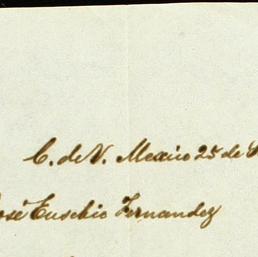 C. de V. Mexico 25 de
José Eusebio Fernandez